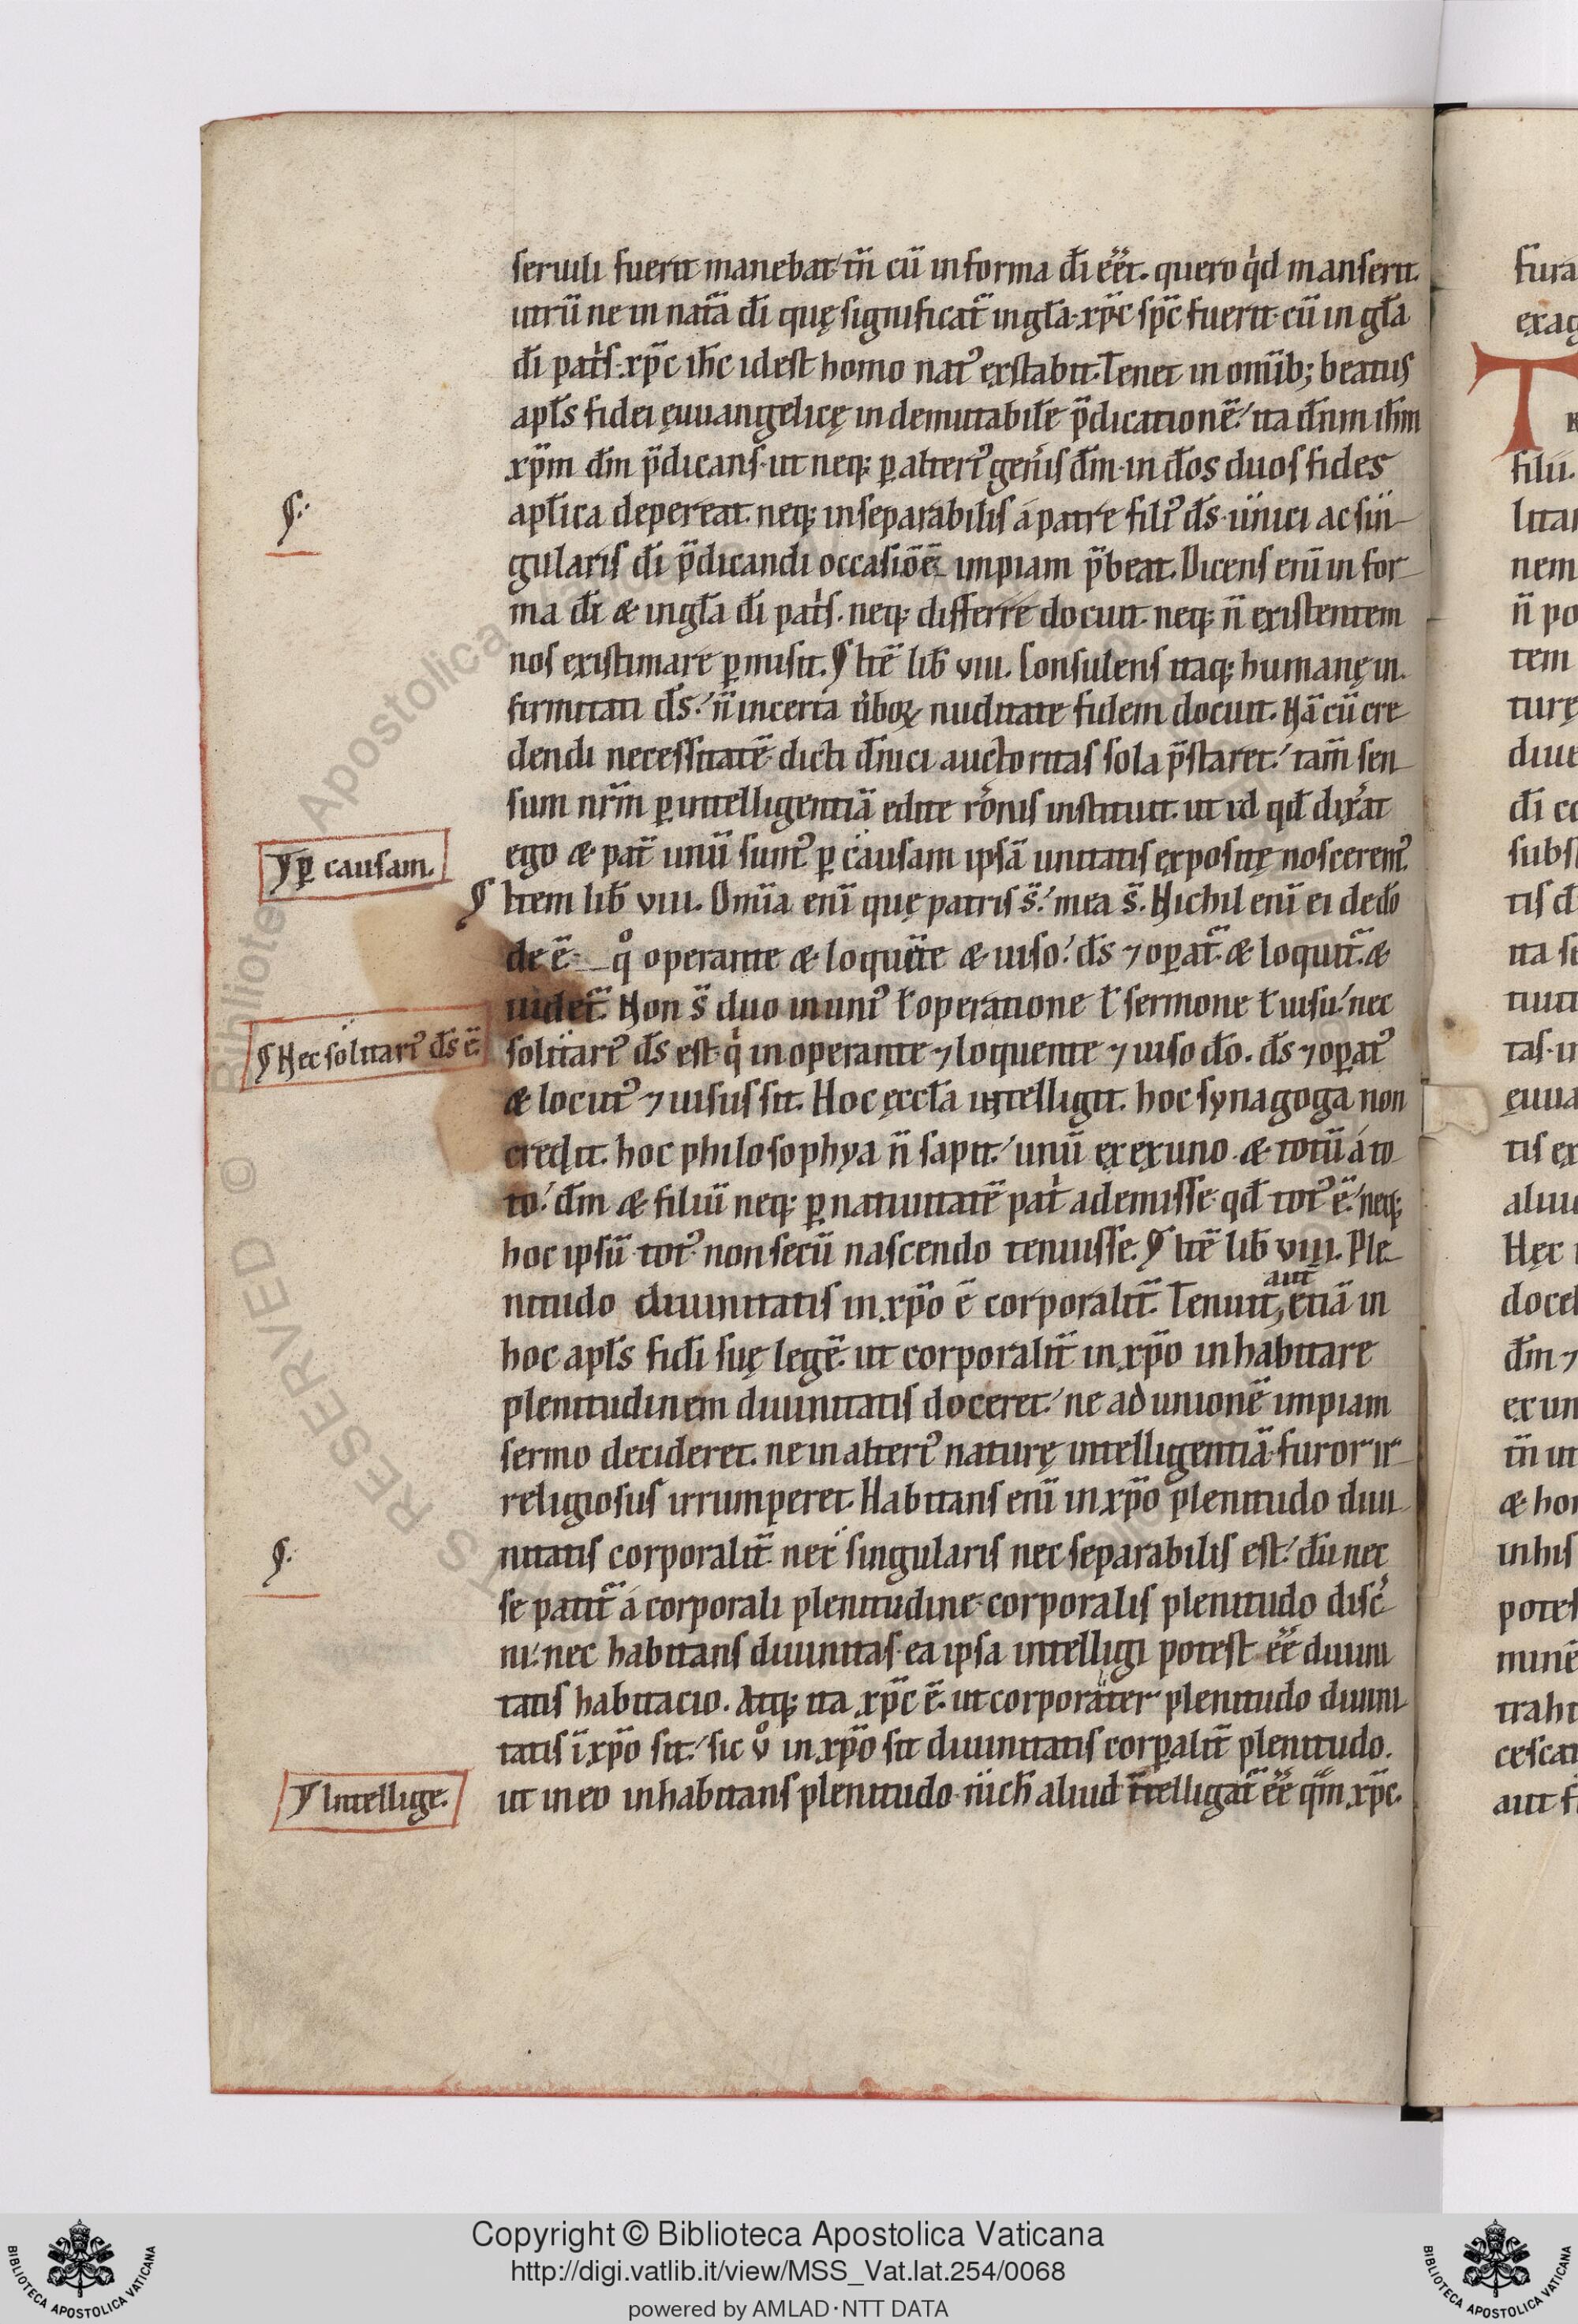 seruili fuerit manebat tn̄ cū in forma dī eēt. quero qͥd manserit.
utrū ne in natā dī quę significat̄ in gła xp̄c sp̄c fuerit cū in gła
dī patͥs. xp̄c ih̄c id est homo nat᾽ exstabit. Tenet in omīb; beatus
apłs fidei ęuuangelicę in demutabilē p̄dicationē. ita dn̄m ih̄m
xp̄m dm̄ p̄dicans. ut neq; ꝑ alteri᾽ genͥis dm̄. in dōs duos fides
apłica depereat. neq; inseparabilis á patre fili᾽ ds̄ unici ac sin
gularis dī p̄dicandi occasiōē impiam p̄beat. Dicens enī in for
ma dī & in gła dī patͥs. neq; differre docuit. neq; n̄ existentem
nos existimare ꝑmisit. ¶ Itē lib̄ viii. Consulens itaq; humanę in
firmitati ds̄. n̄ incerta ūboꝝ nuditate fidem docuit. Nā cū cre
dendi necessitatē dicti dn̄ici auctoritas sola p̄staret. tam̄ sen
sum nr̄m ꝑ intelligentiā edite rōnis instituit. ut id qd̄ dixͣat
ego & pat̄ unū sum᾽ ꝑ causam ipsā unitatis expositę noscerem᾽.
¶ꝑ causam.
¶ Item lib̄ viii. Omīa enī quę patris s̄. mea s̄. Nichil enī ei de dō
de ē. qͦ operante & loquēte & uiso. ds̄ ⁊ oꝑat̄. & loquit̄. &
uidet̄. Non s̄ duo in uni᾽ ł operatione ł sermone ł uisu. nec
¶ Nec solitari᾽ ds̄ ē
solitari᾽ ds̄ est qͥ in operante ⁊ loquente ⁊ uiso dō. ds̄ ⁊ oꝑat᾽
& locut᾽ ⁊ uisus sit. Hoc ęccła intelligit. hoc synagoga non
credit. hoc philosophya n̄ sapit. unū ex uno. & totū á to
to. dm̄ & filiū neq; ꝑ natiuitatē patͥ ademisse qd̄ tot᾽ ē. neq;
hoc ipsū tot᾽ non secū nascendo tenuisse. ¶ Itē lib̄ viii. Ple
aut̄
nitudo diuinitatis in xp̄o ē corporalit̄. Tenuit, etiā in
hoc apłs fidī suę legē. ut corporalit̄ in xp̄o inhabitare
plenitudinem diuinitatis doceret. ne ad unionē impiam
sermo decideret. ne in alteri᾽ naturę intelligentiā furor ir
religiosus irrumperet. Habitans enī in xp̄o plenitudo diui
nitatis corporalit̄ nec singularis nec separabilis est. dū nec
se patit̄ á corporali plenitudine corporalis plenitudo discͥ
ni. nec habitans diuinitas ea ipsa intelligi potest eē diuini
tatis habitacio. Atq; ita xp̄c ē. ut corporaliter plenitudo diuini
tatis ī xp̄o sit. sic uͦ in xp̄o sit diuinitatis corꝑalit̄ plenitudo.
¶ Intellige.
ut in eo inhabitans plenitudo n̄ich̄ aliud ītelligat̄ eē qm̄ xp̄c.
Copyright © Biblioteca Apostolica Vaticana
http://digi.vatlib.it/view/MSS_Vat.lat.254/0068
powered by AMLAD·NTT DATA
BIBLIOTECA APOSTOLICA VATICANA
BIBLIOTECA APOSTOLICA VATICANA